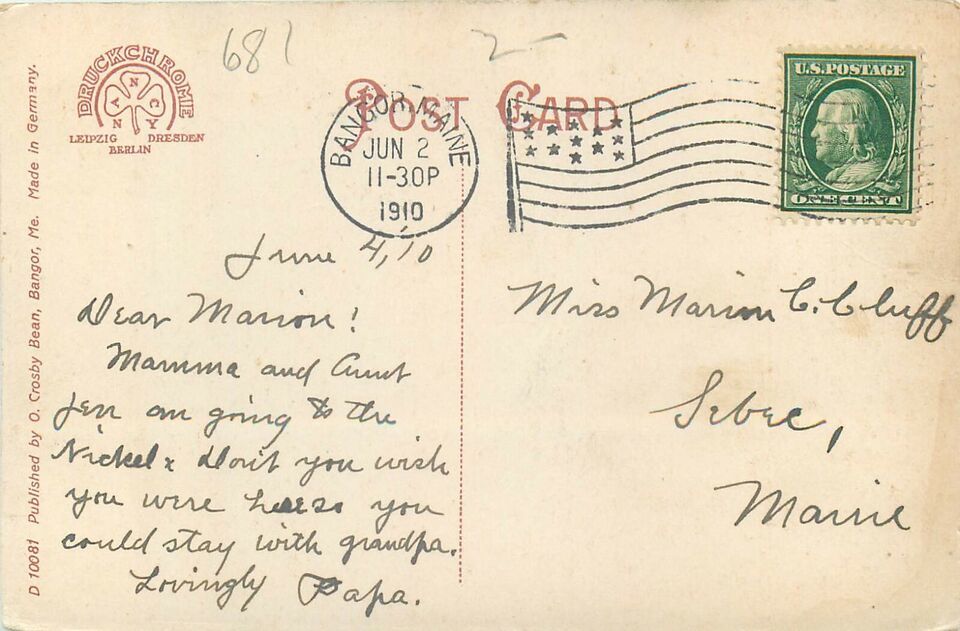 681
2-
DRUCKCHROME
N
A C
N Y
LEIPZIG DRESDEN
BERLIN
POST CARD
BANGOR, MAINE
JUN 2
11-30P
1910
U.S. POSTAGE
ONE CENT
D 10081 Published by O. Crosby Bean, Bangor, Me. Made in Germany.
June 4,'10
Dear Marion!
Mamma and Aunt
Jen are going to the
Nickel & Don't you wish
you were here so you
could stay with grandpa.
Lovingly Papa.
Miss Marion C. Cluff
Sebec,
Maine